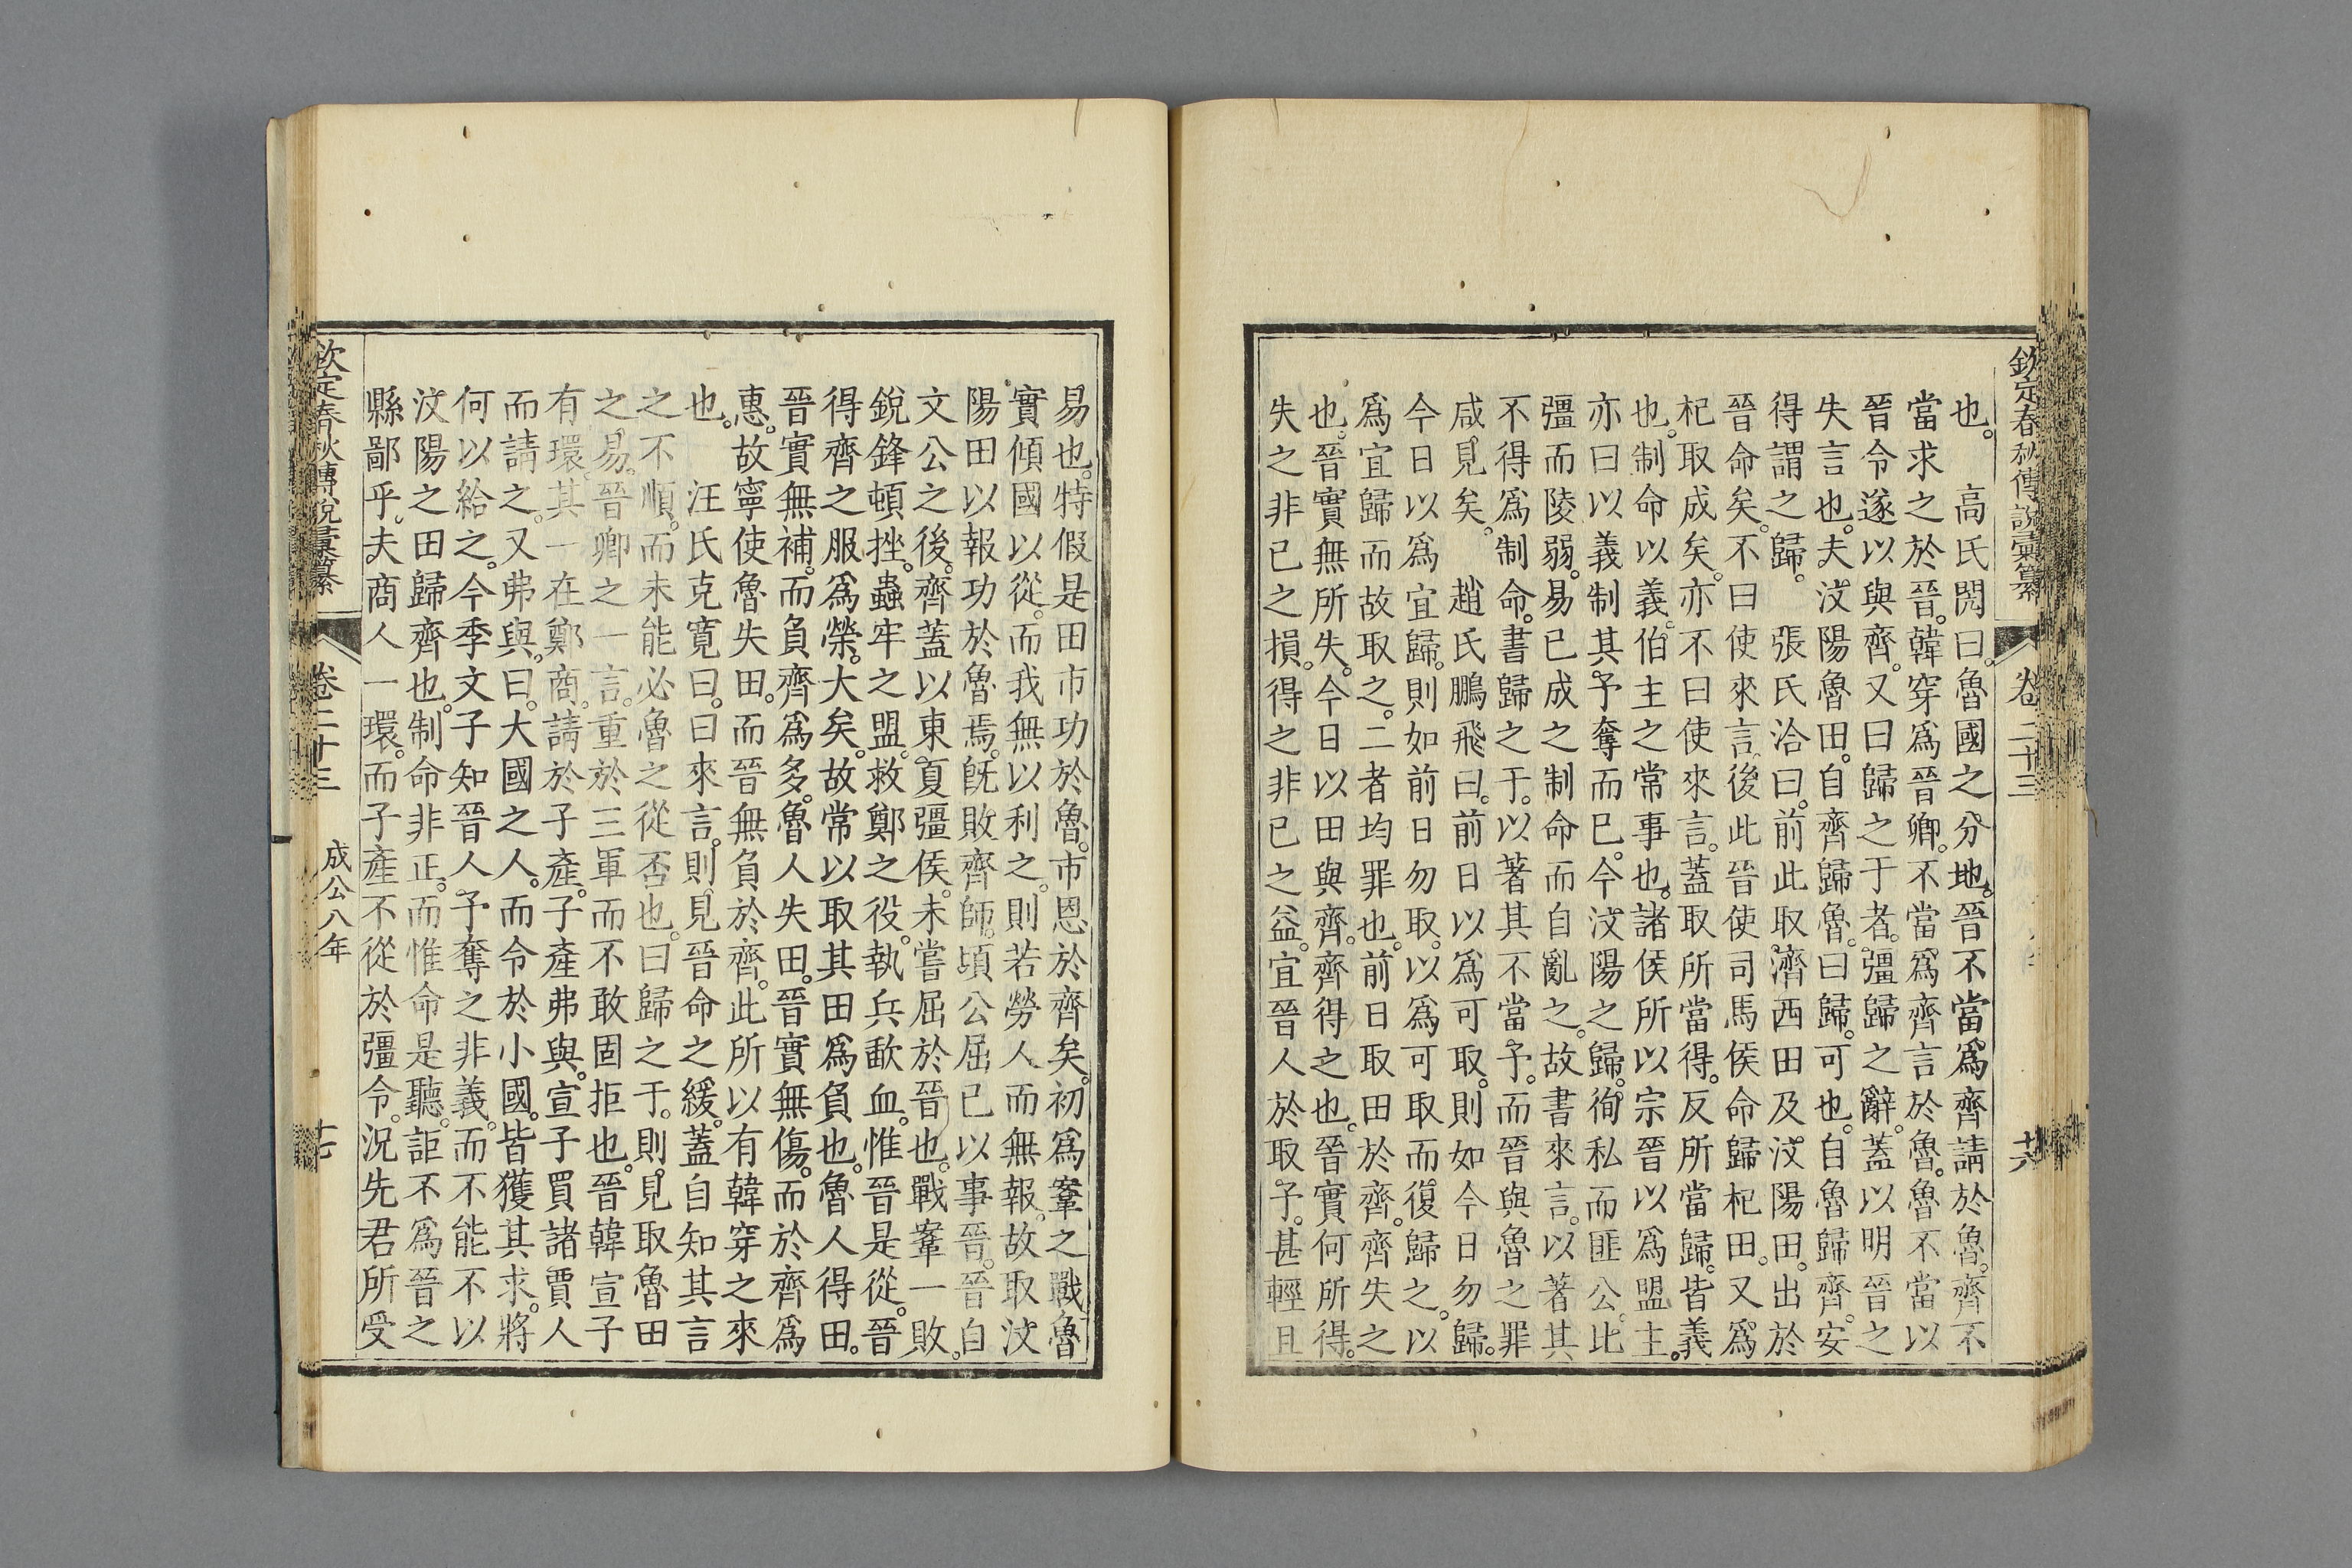 欽定春秋傳說彙纂 卷二十三 十六
也。 高氏閌曰。魯國之分地。晉不當爲齊請於魯。齊不
當求之於晉。韓穿爲晉卿。不當爲齊言於魯。魯不當以
晉令遂以與齊。又曰歸之于者。彊歸之辭。蓋以明晉之
失言也。夫汶陽魯田。自齊歸魯。曰歸。可也。自魯歸齊。安
得謂之歸。 張氏洽曰。前此取濟西田及汶陽田。出於
晉命矣。不曰使來言。後此晉使司馬侯命歸杞田。又爲
杞取成矣。亦不曰使來言。蓋取所當得。反所當歸。皆義
也。制命以義。伯主之常事也。諸侯所以宗晉以爲盟主。
亦曰以義制其予奪而已。今汶陽之歸。徇私而匪公。比
彊而陵弱。易已成之制命而自亂之。故書來言。以著其
不得爲制命。書歸之于。以著其不當予。而晉與魯之罪
咸見矣。 趙氏鵬飛曰。前日以爲可取。則如今日勿歸。
今日以爲宜歸。則如前日勿取。以爲可取而復歸之。以
爲宜歸而故取之。二者均罪也。前日取田於齊。齊失之
也。晉實無所失。今日以田與齊。齊得之也。晉實何所得。
失之非已之損。得之非已之益。宜晉人於取予。甚輕且
易也。特假是田市功於魯。市恩於齊矣。初爲鞌之戰。魯
實傾國以從。而我無以利之。則若勞人而無報。故取汶
陽田以報功於魯焉。旣敗齊師。頃公屈已以事晉。晉自
文公之後。齊蓋以東夏彊侯。未嘗屈於晉也。戰鞌一敗。
銳鋒頓挫。蟲牢之盟。救鄭之役。執兵歃血。惟晉是從。晉
得齊之服爲榮。大矣。故常以取其田爲負也。魯人得田。
晉實無補。而負齊爲多。魯人失田。晉實無傷。而於齊爲
惠。故寧使魯失田。而晉無負於齊。此所以有韓穿之來
也。 汪氏克寬曰。曰來言。則見晉命之緩。蓋自知其言
之不順。而未能必魯之從否也。曰歸之于。則見取魯田
之易。晉卿之一言。重於三軍而不敢固拒也。晉韓宣子
有環。其一在鄭商。請於子產。子產弗與。宣子買諸賈人
而請之。又弗與。曰。大國之人。而令於小國。皆獲其求。將
何以給之。今季文子知晉人予奪之非義。而不能不以
汶陽之田歸齊也。制命非正。而惟命是聽。詎不爲晉之
縣鄙乎。夫商人一環。而子產不從於彊令。況先君所受
欽定春秋傳說彙纂 卷二十三 成公八年 十七